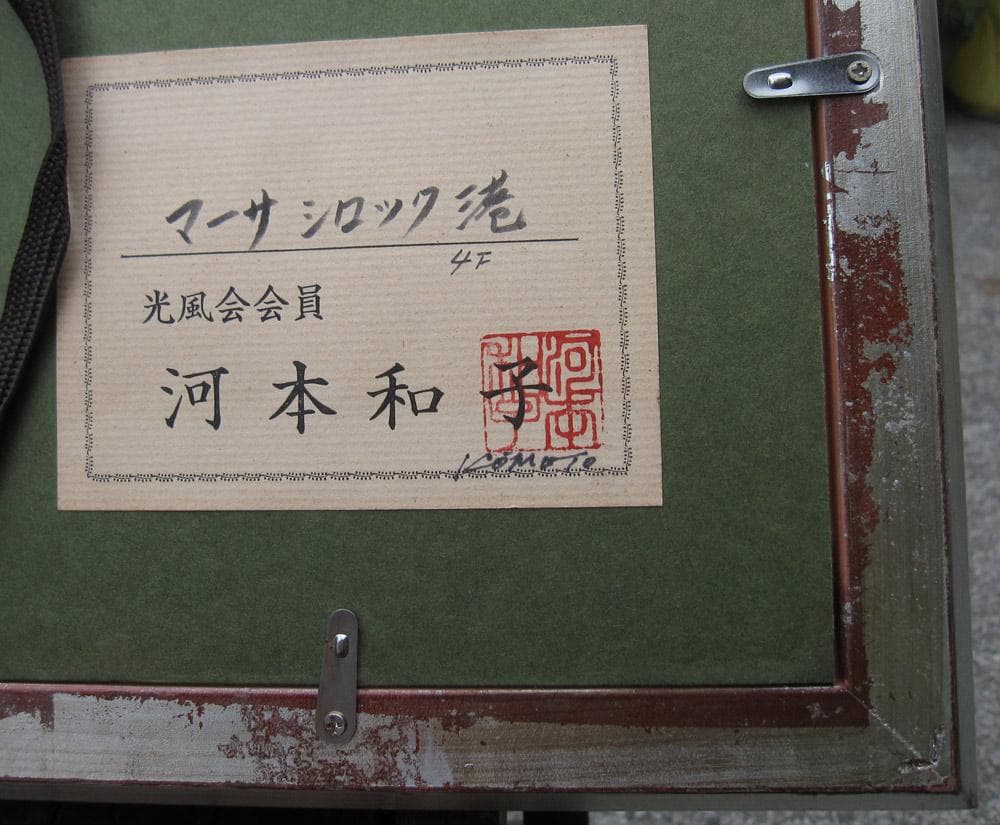 マーサ シロック 港
4F
光風会会員
河本和子
河本
KOMOTO